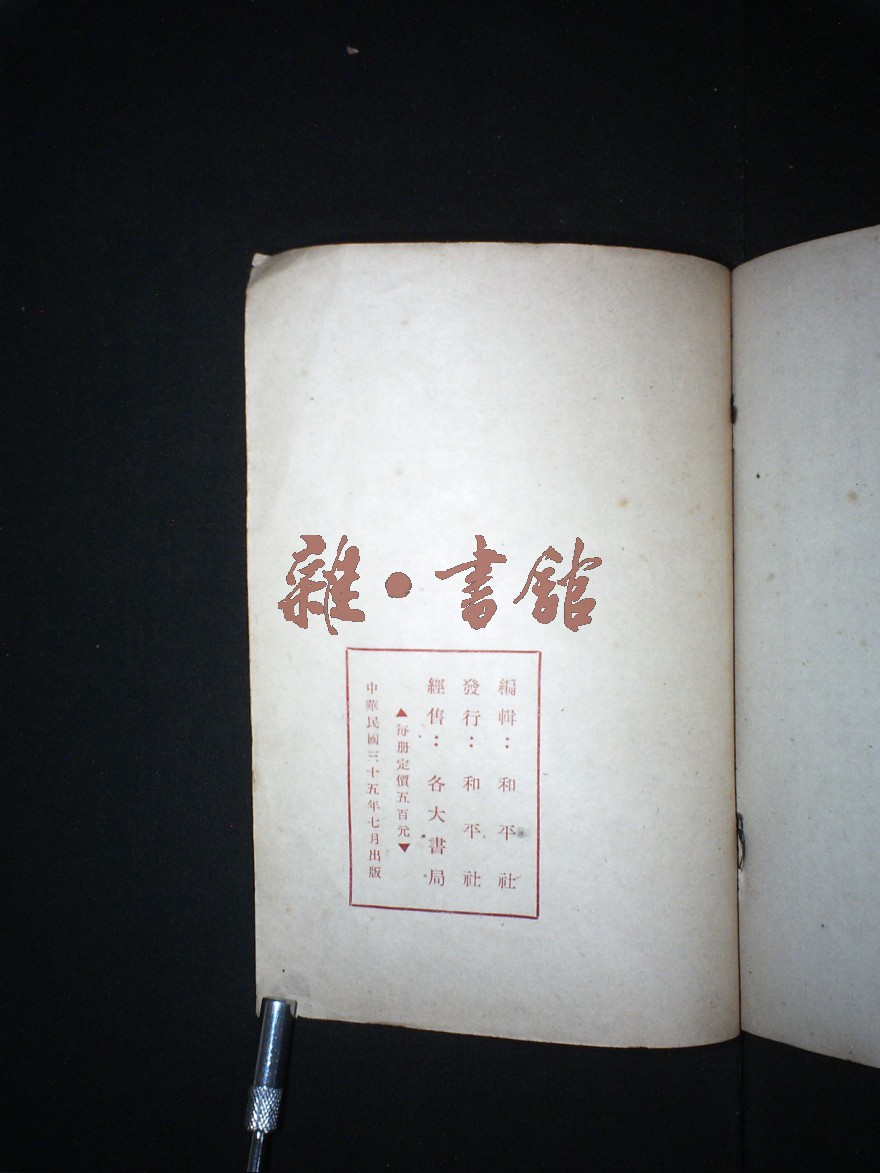 雜·書館
編輯：和平社
發行：和平社
經售：各大書局
▲每册定價五百元▼
中華民國三十五年七月出版